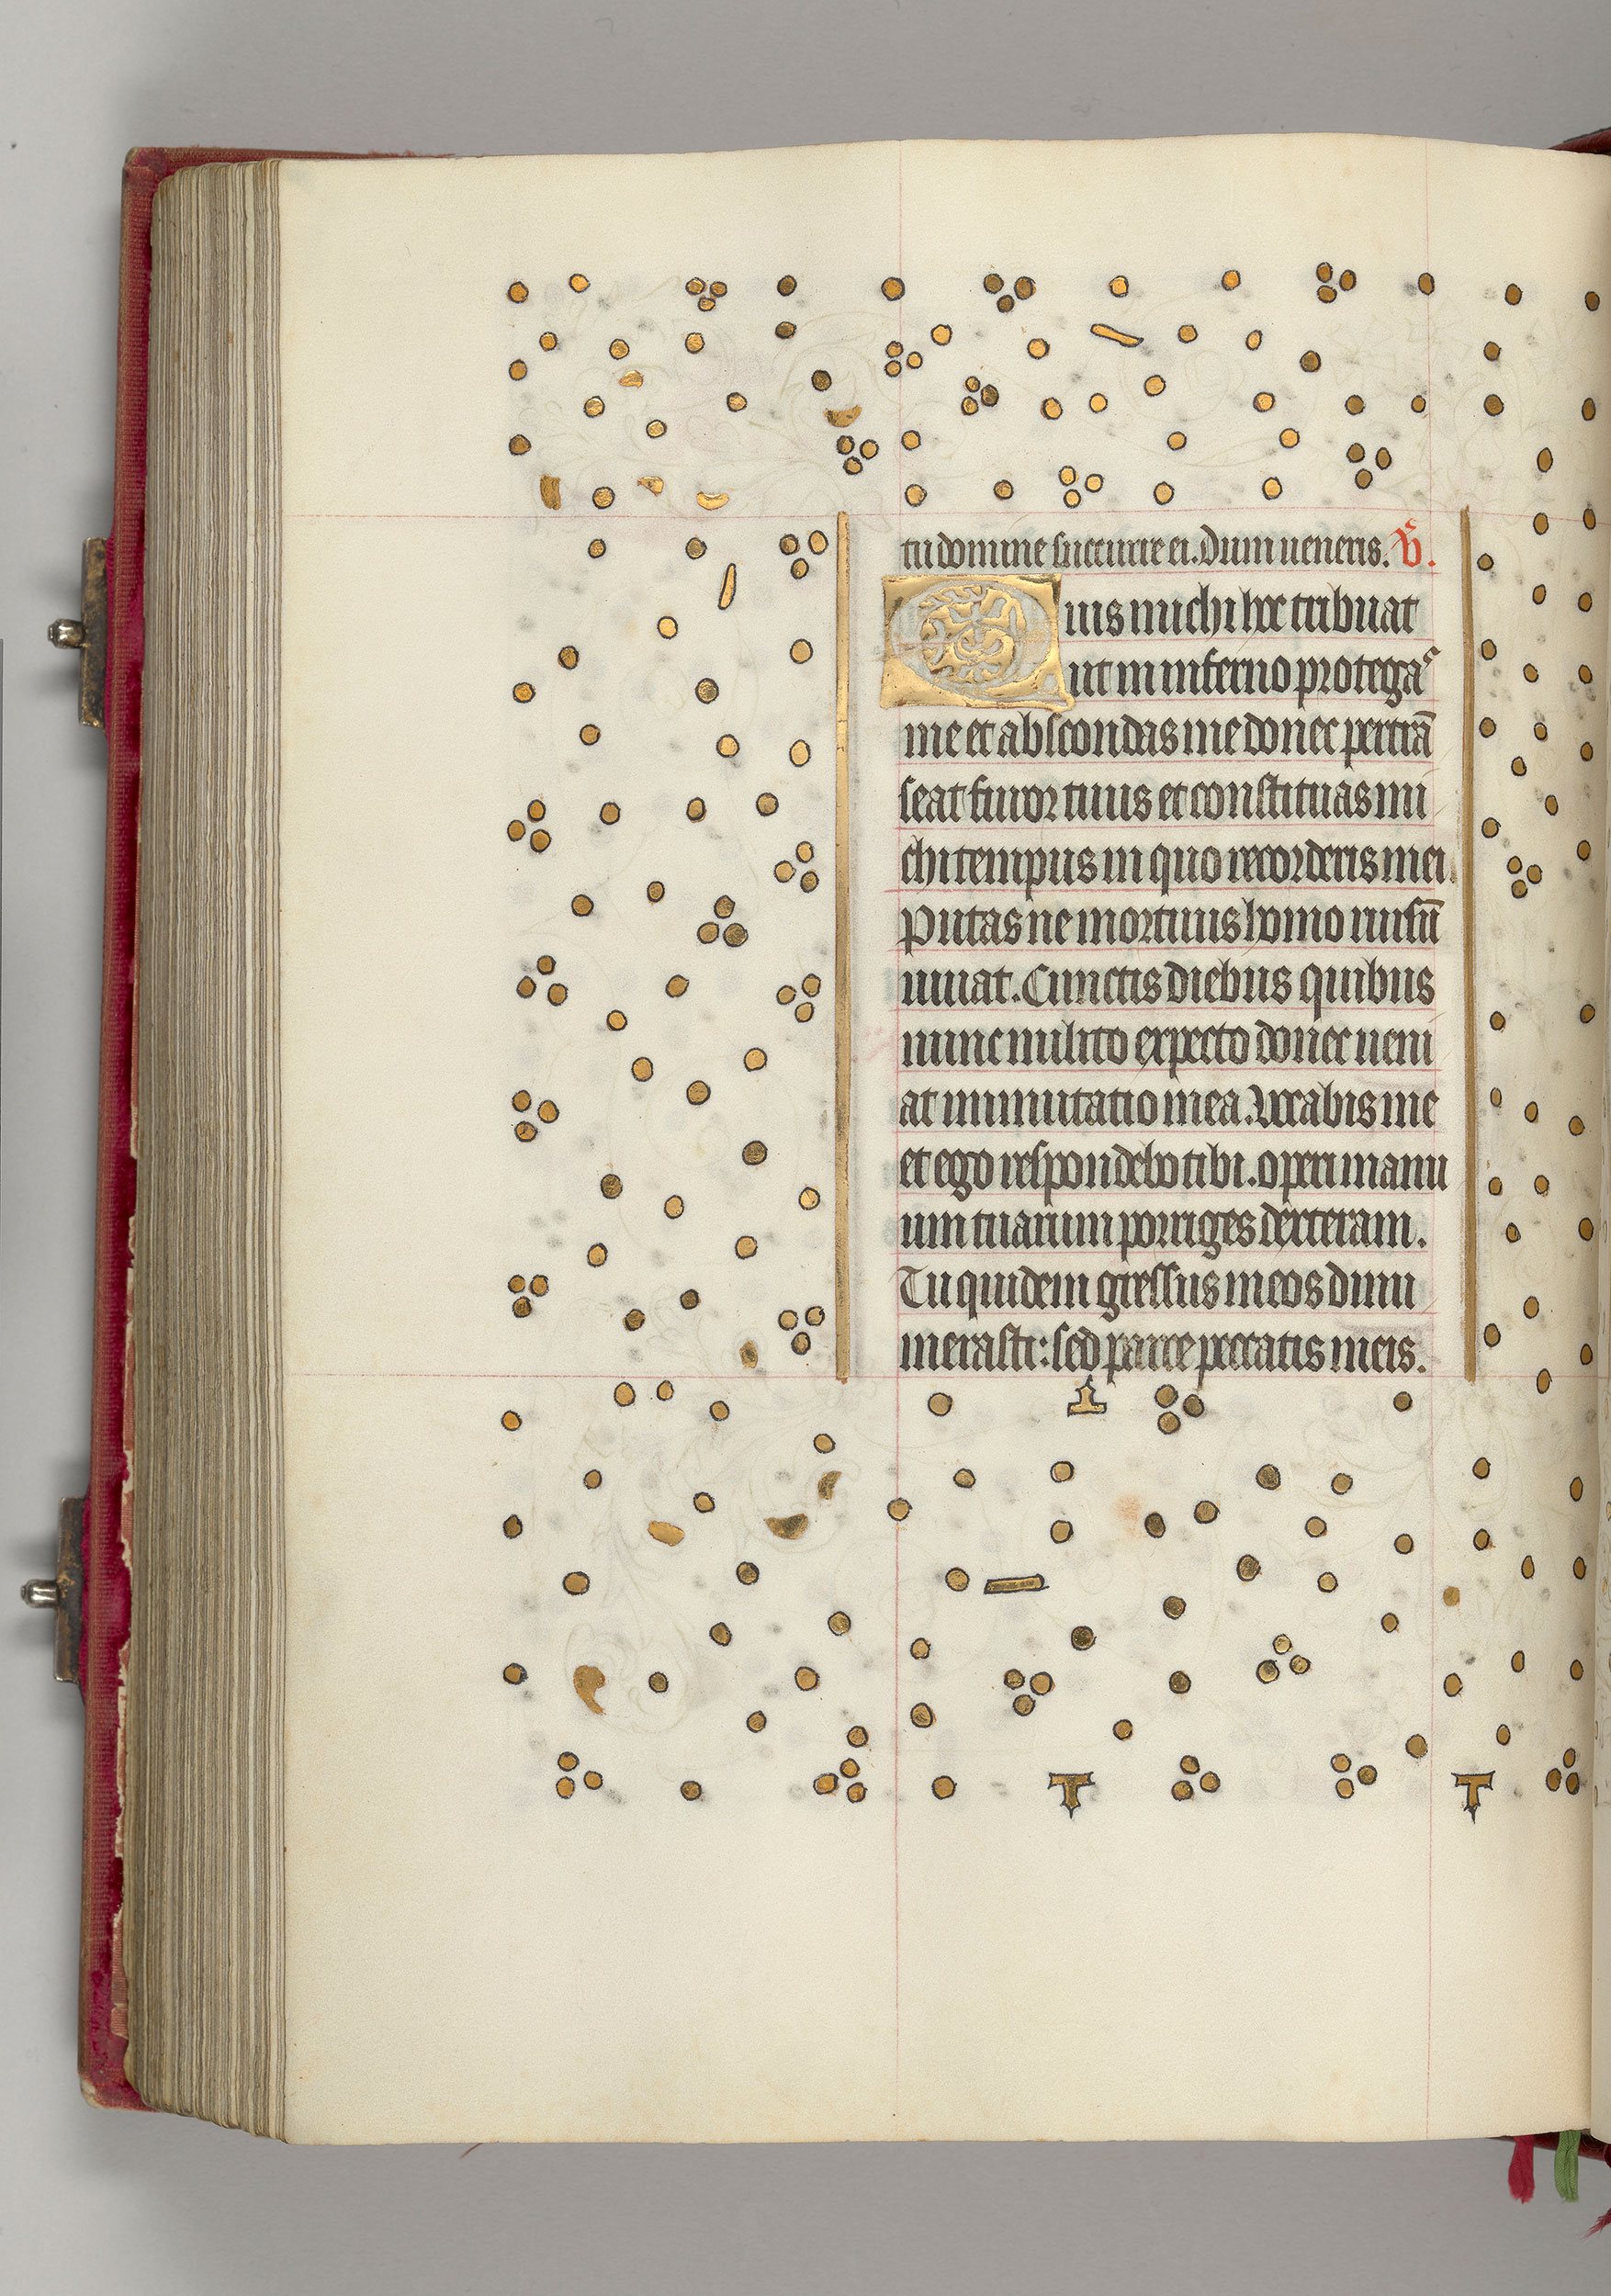 tu domine succurre ei. Dum ueneris. V̾.
Quis michi hoc tribuat
ut in inferno protegas
me et abscondas me donec pertrā
seat furor tuus et constituas mi
chi tempus in quo recorderis mei.
Putas ne mortuus homo rursū
uiuat. Cunctis diebus quibus
nunc milito expecto donec ueni
at inmutatio mea. Uocabis me
et ego respondebo tibi. operi manu
um tuarum porriges dexteram.
Tu quidem gressus meos dinu
merasti: sed parce peccatis meis.